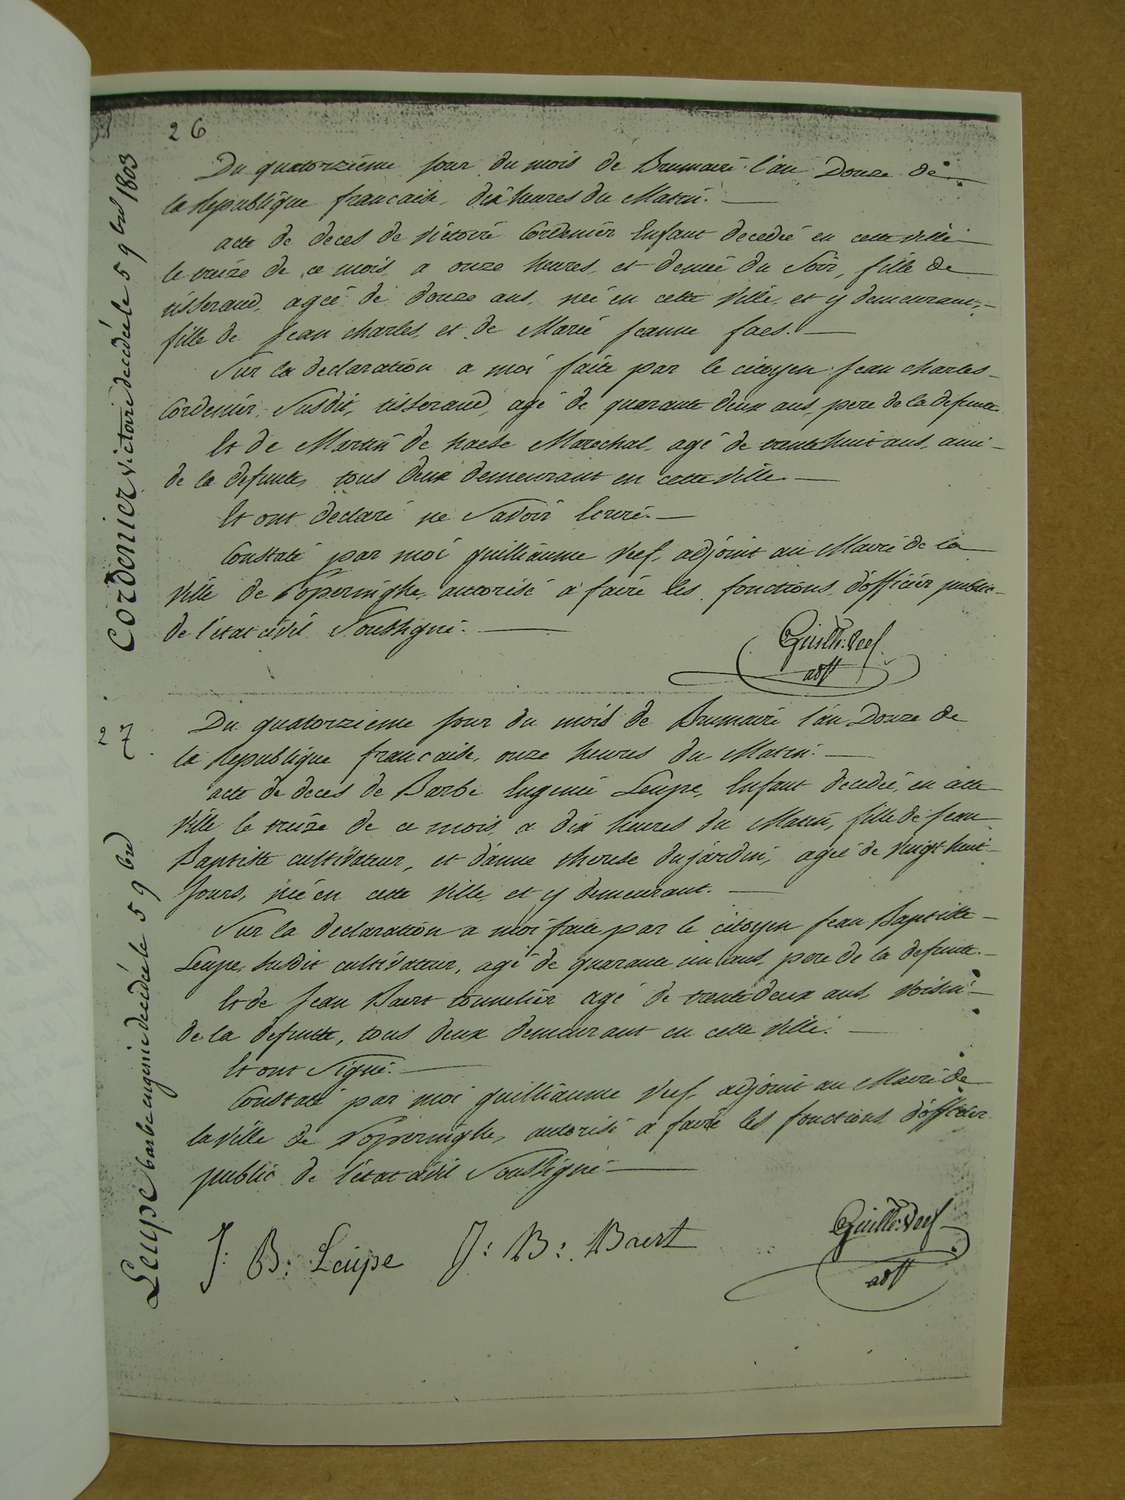 26
Cordenier victoire decedée le 5 9bre 1803
Du quatorzieme jour du mois de Brumaire l'an Douze de
la Republique francaise, dix heures du Matin.
acte de deces de Victoire Cordenier Enfant decedée en cette ville
le treize de ce mois, a onze heures, et demie du Soir, fille de
tisserand, agée de douze ans, née en cette Ville, et y demeurant,
fille de Jean charles, et de Marie Jeanne faes.
Sur la declaration a moi faite par le citoyen Jean charles
Cordenier, Susdit, tisserand, agé de quarante deux ans, pere de la defunte
Et de Martin de haese Marechal, agé de trente huit ans, ami
de la defunte, tous deux demeurant en cette Ville.
Et ont declaré ne Savoir Ecrire.
Constaté par moi guilliaume Veef, adjoint au Maire de la
Ville de Poperinghe, autorisé a faire les fonctions d'officier public
de l'état civil Soussigné.
Guill: Veef
adjt
27
Leupe barbe eugenie decedée le 5 9bre
Du quatorzieme jour du mois de Brumaire l'an Douze de
la Republique francaise, onze heures du Matin.
acte de deces de Barbe Eugenie Leupe, Enfant decedée, en cette
Ville le treize de ce mois, a dix heures du Matin, fille de Jean
Baptiste cultivateur, et d'anne therese dujardin, agée de vingt huit
Jours, née en cette Ville, et y demeurant.
Sur la declaration a moi faite par le citoyen Jean Baptiste
Leupe, susdit cultivateur, agé de quarante un ans, pere de la defunte.
Et de Jean Baert tonnelier agé de trente deux ans, Voisin
de la defunte, tous deux demeurant en cette Ville.
Et ont Signé.
Constaté par moi guilliaume Veef, adjoint au Maire de
la Ville de Poperinghe, autorisé a faire les fonctions d'officier
public de l'état civil Soussigné
J: B: Leupe J: B: Baert
Guill: Veef
adjt